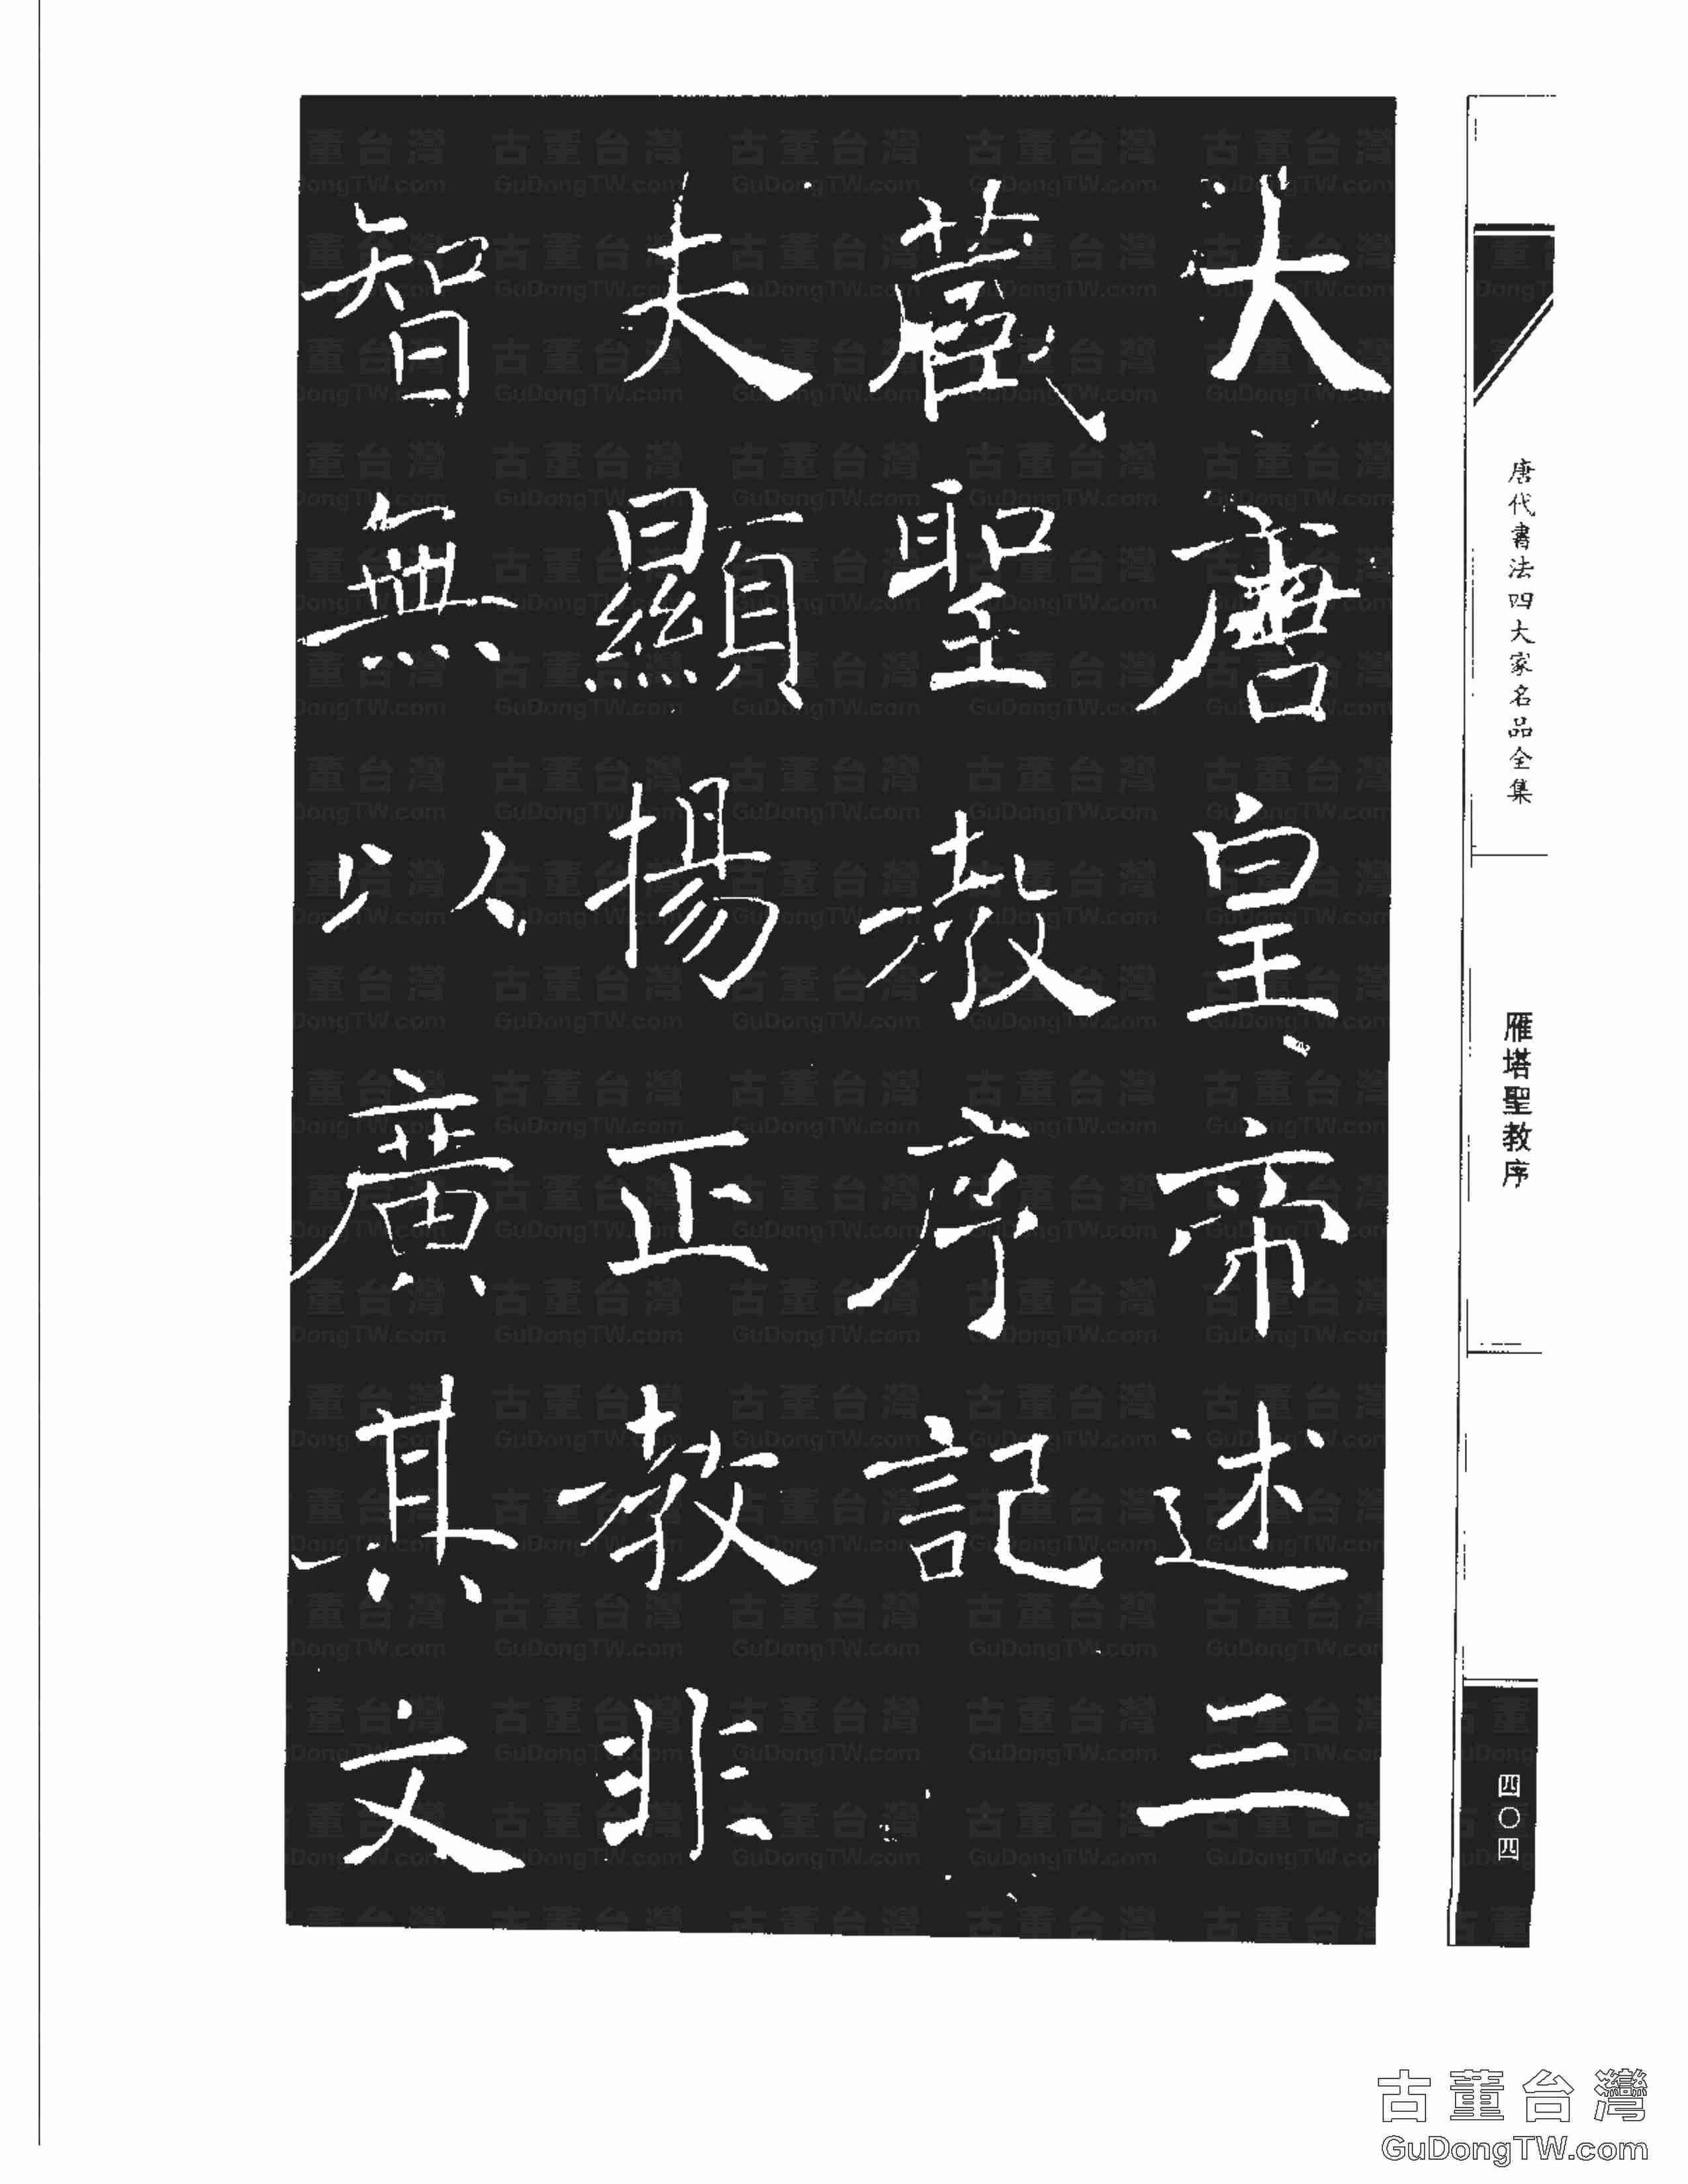 唐代書法四大家名品全集
雁塔聖教序
四〇四
大唐皇帝述三
藏聖教序記
夫顯揚正教非
智無以廣其文
古董台灣
GuDongTW.com